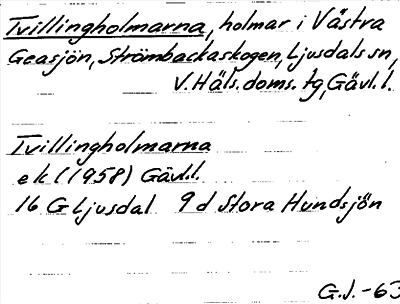 Tvillingholmarna, holmar i Västra
Geasjön, Strömbackaskogen, Ljusdals sn,
V. Häls. doms. tg, Gävl. l.
Tvillingholmarna
ek (1958) Gävl.l.
16 G Ljusdal 9 d Stora Hundsjön
G.J. -63